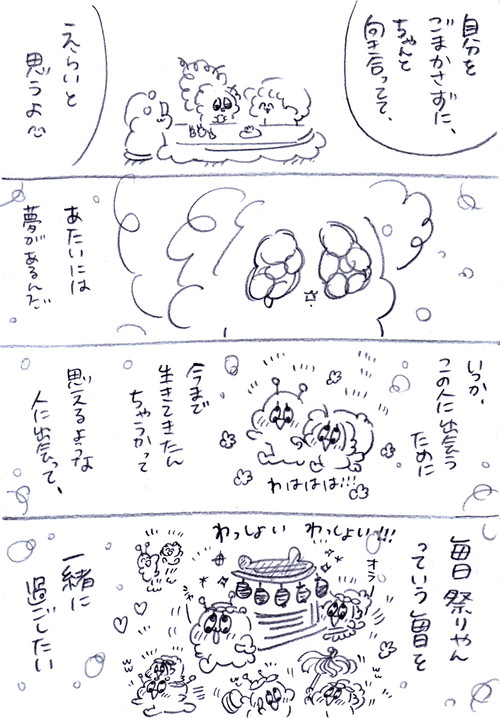 自分を
ごまかさずに、
ちゃんと
向き合ってて、
えらいと
思うよ
あたいには
夢があるんだ
いつか、
この人に出会う
ために
今まで
生きてきたん
ちゃうかって
思えるような
人に出会って、
わははは!!!
毎日祭りやん
っていう毎日を
わっしょい わっしょい!!!
オラー
一緒に
過ごしたい